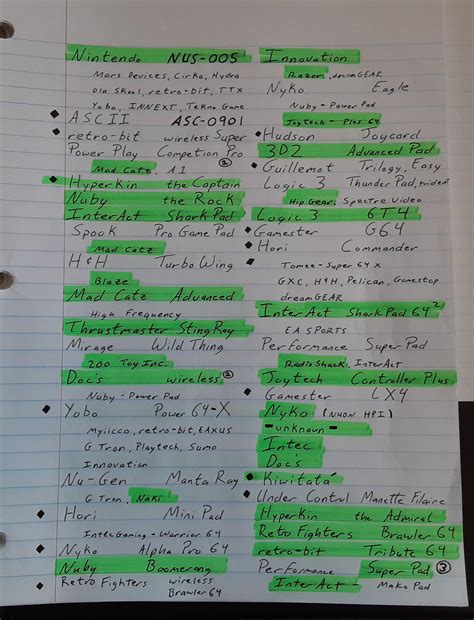 Nintendo NUS-005
Mars Devices, Cirka, Hydra
Old Skool, retro-bit, TTX
Yobo, INNEXT, Tekno Game
ASCII ASC-0901
retro-bit wireless Super
Power Play Competion Pro
Mad Catz, A1 ②
Hyperkin the Captain
Nuby the Rock
InterAct SharkPad
Spook Pro Game Pad
Mad Catz
H&H Turbo Wing
Blaze
Mad Catz Advanced
High Frequency
Thrustmaster Sting Ray
Mirage Wild Thing
200 Toy Inc.
Doc's wireless ②
Nuby - Power Pad
Yobo Power 64-X
Myiicco, retro-bit, EAXUS
G Tron, Playtech, Sumo
Innovation
Nu-Gen Manta Ray
G Tron, Naki
Hori Mini Pad
Intec Gaming - Warrior 64
Nyko Alpha Pro 64
Nuby Boomerang
Retro Fighters wireless
Brawler 64
Innovation
Razor, dreamGEAR
Nyko Eagle
Nuby - Power Pad
Joytech - Plus 64
Hudson Joycard
3D2 Advanced Pad
Guillemot Trilogy, Easy
Logic 3 Thunder Pad, trident
Hip Gear, Spectre Video
Logic 3 GT4
Gamester G64
Hori Commander
Tomee - Super 64 X
GXC, H&H, Pelican, Gamestop
dreamGEAR
InterAct SharkPad 64²
EA SPORTS
Performance Super Pad
Radio Shack, InterAct
Joytech Controller Plus
Gamester LX4
Nyko (NUON HPI)
-unknown-
Intec
Doc's
Kiwitatá
Under Control Manette Filaire
Hyperkin the Admiral
Retro Fighters Brawler 64
retro-bit Tribute 64
Performance Super Pad ③
InterAct - Mako Pad